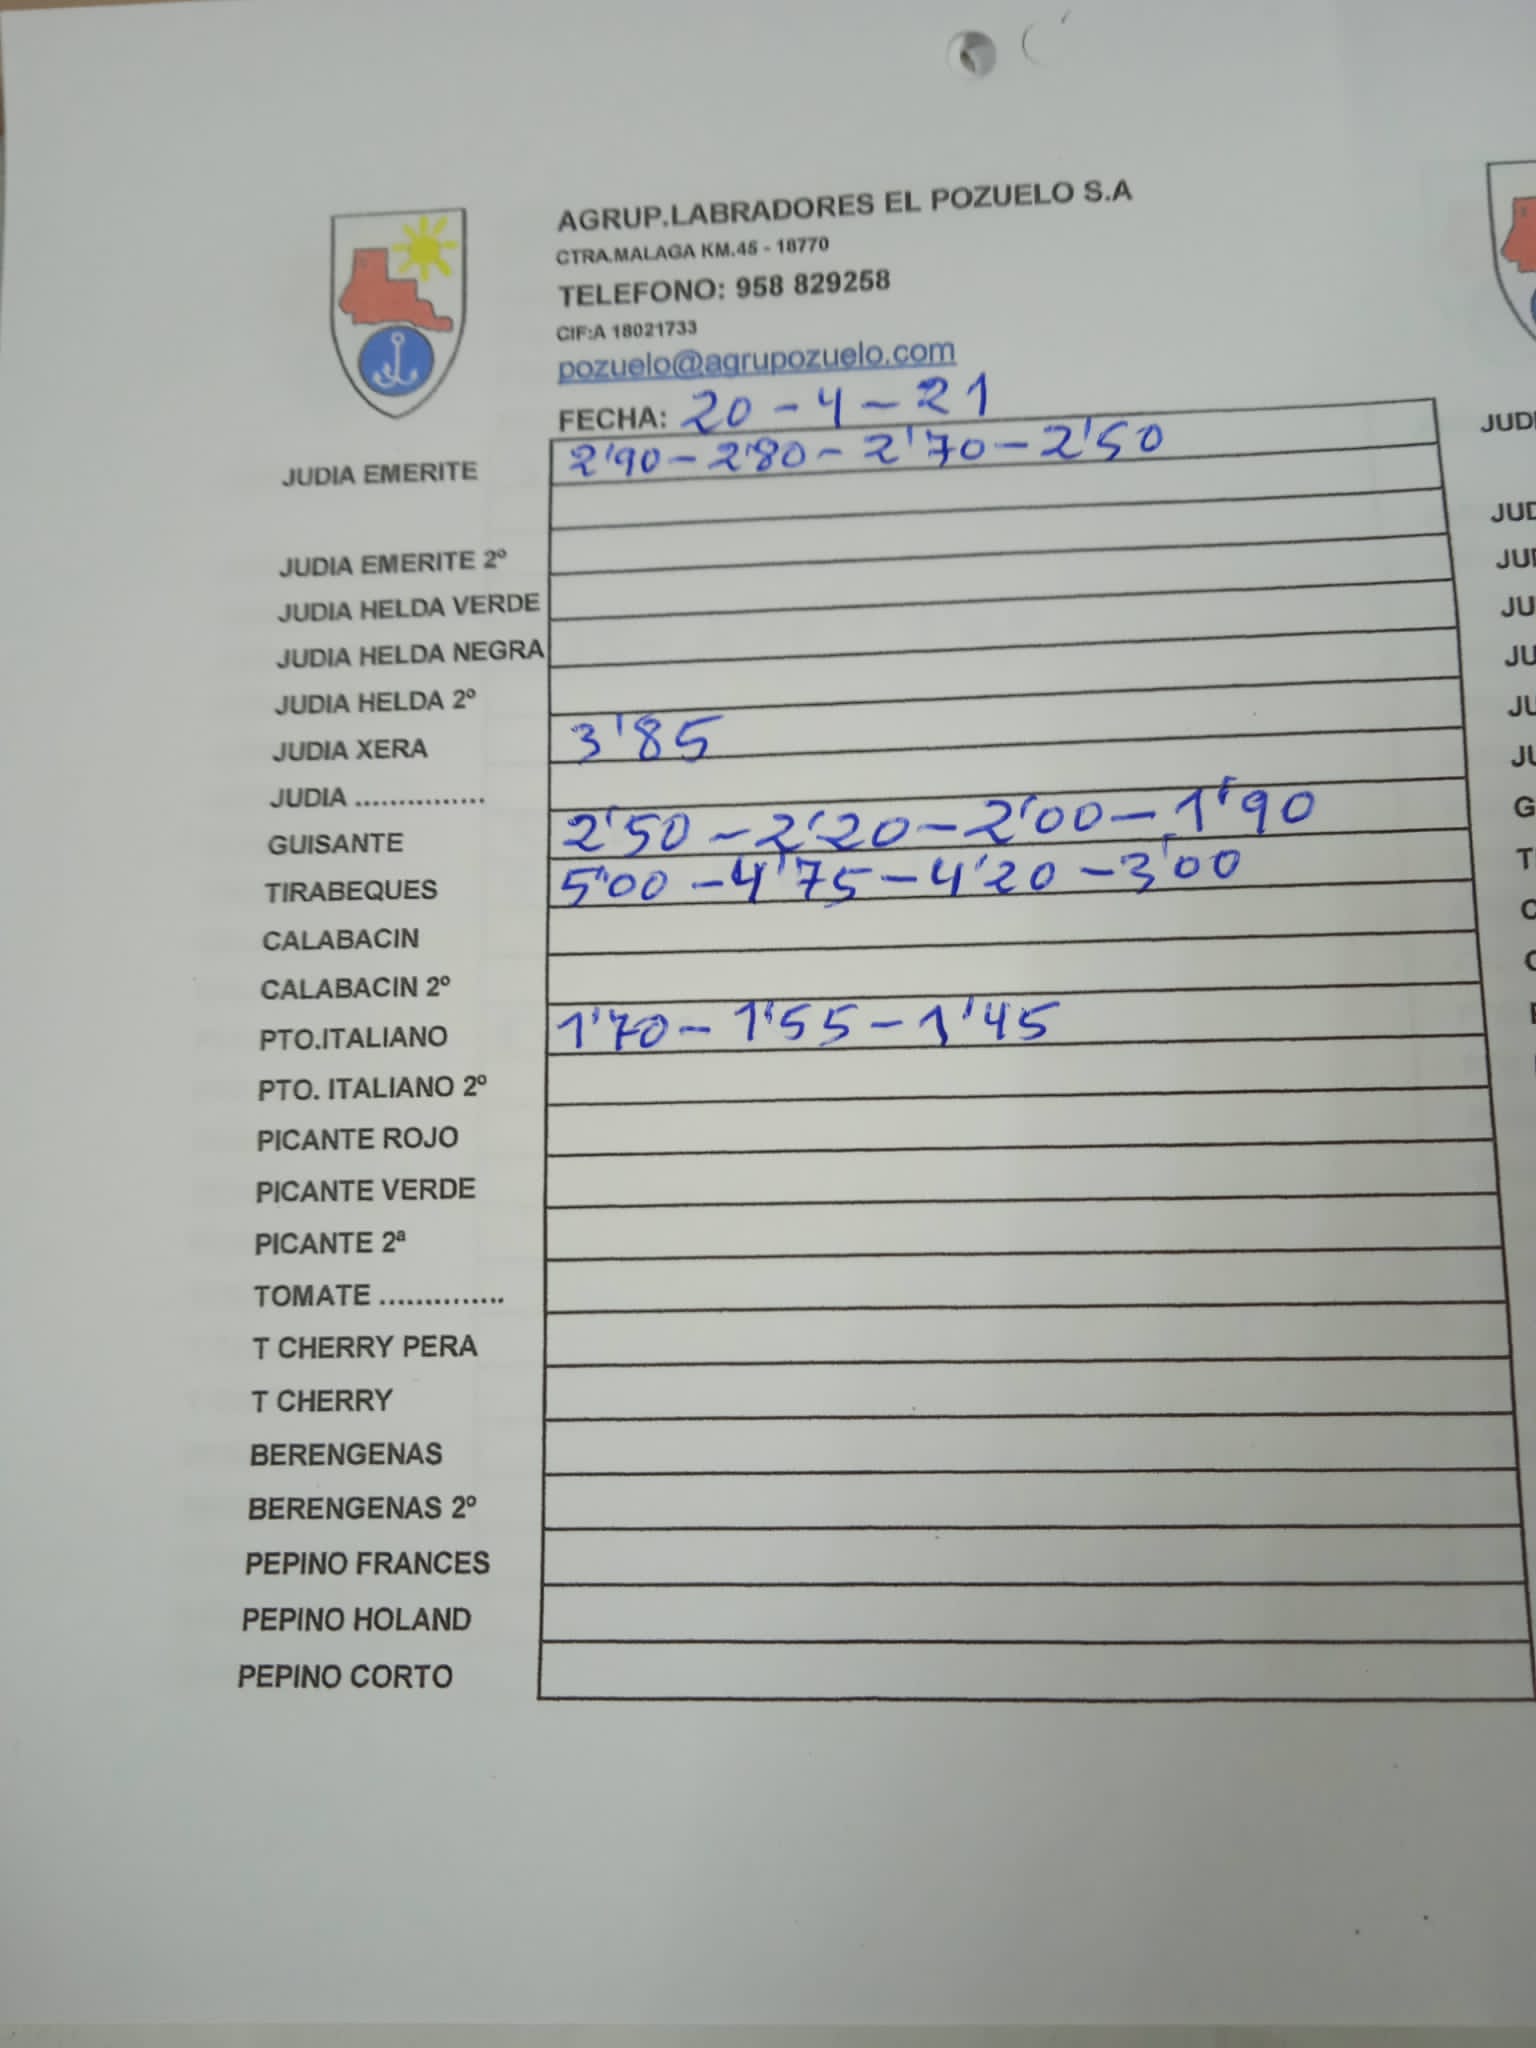 AGRUP.LABRADORES EL POZUELO S.A
CTRA.MALAGA KM.45 - 18770
TELEFONO: 958 829258
CIF:A 18021733
pozuelo@agrupozuelo.com
FECHA: 20-4-21
JUDIA EMERITE 2'90-2'80-2'70-2'50
JUDIA EMERITE 2º
JUDIA HELDA VERDE
JUDIA HELDA NEGRA
JUDIA HELDA 2º
JUDIA XERA 3'85
JUDIA ...............
GUISANTE 2'50-2'20-2'00-1'90
TIRABEQUES 5'00-4'75-4'20-3'00
CALABACIN
CALABACIN 2º
PTO.ITALIANO 1'70-1'55-1'45
PTO. ITALIANO 2º
PICANTE ROJO
PICANTE VERDE
PICANTE 2ª
TOMATE ..............
T CHERRY PERA
T CHERRY
BERENGENAS
BERENGENAS 2º
PEPINO FRANCES
PEPINO HOLAND
PEPINO CORTO